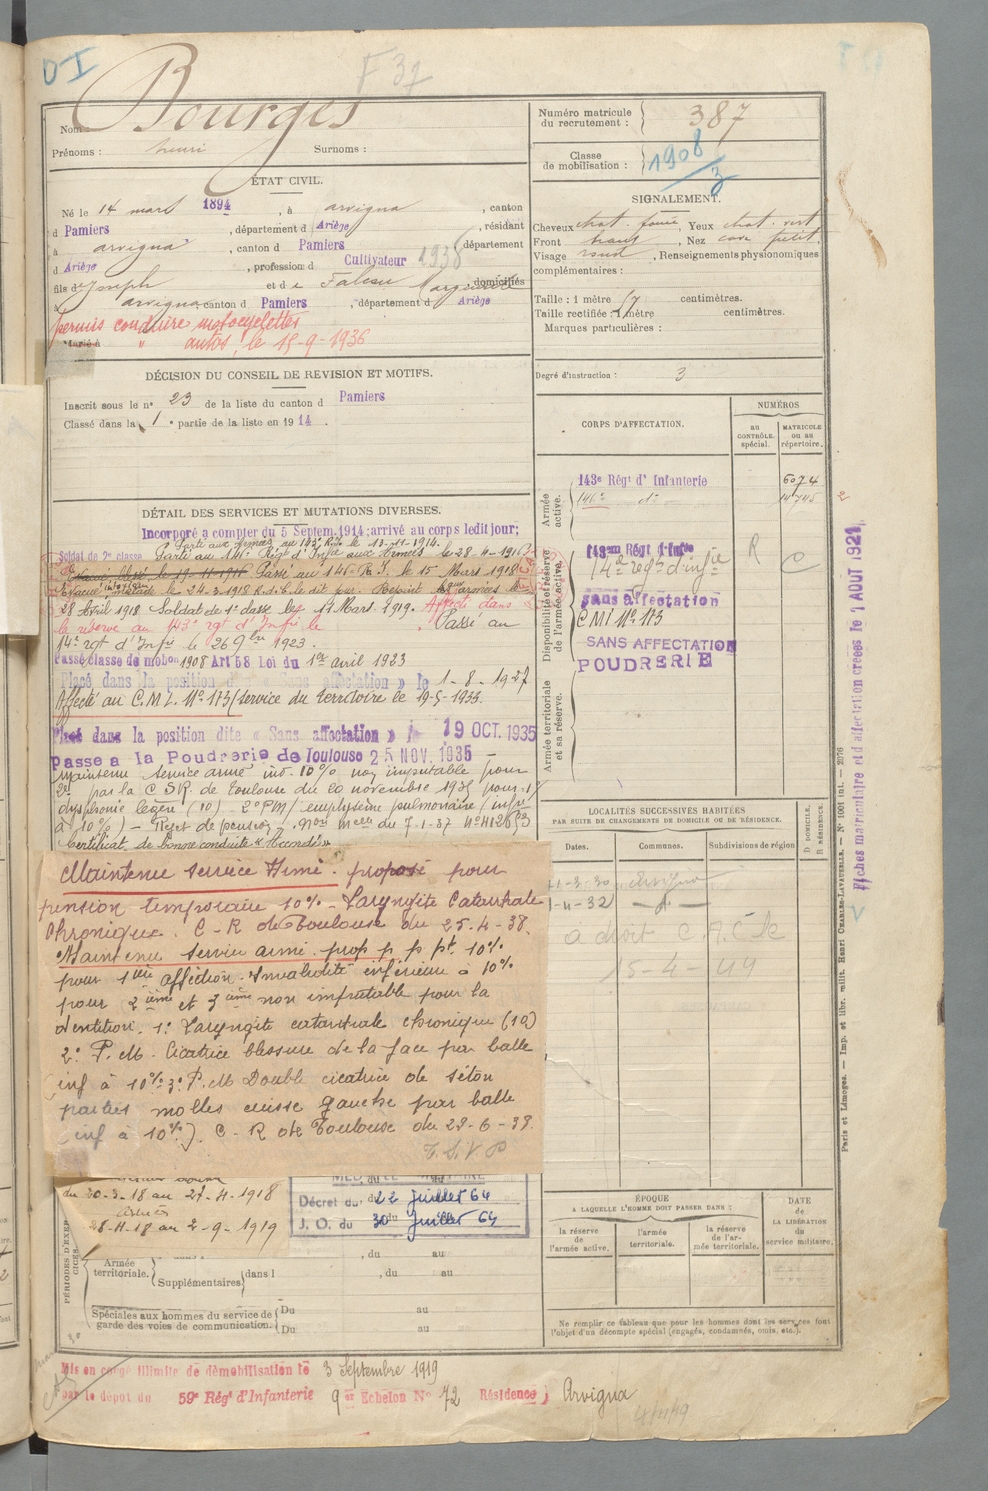 D I
F 37
Nom : Bourges
Prénoms : henri Surnoms :
Numéro matricule du recrutement : 387
Classe de mobilisation : 1908/3
ÉTAT CIVIL.
Né le 14 mars 1894, à arvigna, canton
d Pamiers, département d Ariège, résidant
à arvigna, canton d Pamiers, département
d Ariège, profession d Cultivateur 1938
fils d' Joseph et de Marguerite, domiciliés
à arvigna canton d Pamiers, département d Ariège
permis conduire motocyclettes
Marié à " autos, le 15-9-1936
SIGNALEMENT.
Cheveux chat. foncé, Yeux chat. vert
Front haut, Nez cave petit.
Visage rond, Renseignements physionomiques
complémentaires :
Taille : 1 mètre 67 centimètres.
Taille rectifiée : 1 mètre centimètres.
Marques particulières :
Degré d'instruction : 3
DÉCISION DU CONSEIL DE REVISION ET MOTIFS.
Inscrit sous le n° 23 de la liste du canton d Pamiers
Classé dans la 1e partie de la liste en 1914.
CORPS D'AFFECTATION.
NUMÉROS
AU CONTRÔLE spécial.
MATRICULE ou au répertoire.
Armée active.
143e Régt d'Infanterie 6074
146e d° 14745
Disponibilité et réserve de l'armée active.
143em Régt d'Infie
14e regt d'infie R C
sans affectation
CMI N° 173
SANS AFFECTATION
POUDRERIE
Armée territoriale et sa réserve.
DÉTAIL DES SERVICES ET MUTATIONS DIVERSES.
Incorporé a compter du 5 Septem. 1914; arrivé au corps ledit jour;
Soldat de 2e classe
Parti aux Armées au 143e R.I. le 13-11-1914.
Passé au 146e Régt d'Infie aux Armées le 28-4-1916
Evacué blessé le 19-11-1916 Passé au 146e R.I. le 15 Mars 1918
Evacué, malade le 24-3-1918 le dit jour. Rejoint aux armées le
28 Avril 1918 Soldat de 1e classe le 17 Mars 1919. Affecté dans
la réserve au 143e rgt d'Infie le . Passé au
14e rgt d'Infie le 26 9bre 1923.
Passé classe de mobon 1908 Art 58 Loi du 1er avril 1923
Placé dans la position dite « Sans affectation » le 1-8-1927
Affecté au C.M.I. N° 173 (service du territoire le 19-5-1933.
Placé dans la position dite « Sans affectation » le 19 OCT. 1935
Passe a la Poudrerie de Toulouse 25 NOV. 1935
Maintenu service armé inv. 10% non imputable pour
2e par la C.S.R. de Toulouse du 20 novembre 1935 pour 1°/
dysphonie légère (10) 2° PM/ emphysème pulmonaire (infr
à 10%) – Rejet de pension – Non mcelle du 7-1-37 N° 412653
Certificat de bonne conduite « Accordé »
Maintenu service Armé. proposé pour
pension temporaire 10% - Laryngite Catarrhale
Chronique. C-R de Toulouse du 25-4-38.
Maintenu service armé prop p. p. pt. 10%
pour 1ère affection. Invalidité inférieure à 10%
pour 2ième et 3ième non imputable pour la
dentition. 1° Laryngite catarrhale chronique (10)
2° P.M. Cicatrice blessure de la face par balle
(inf à 10%) 3° P.M Double cicatrice de séton
parties molles cuisse gauche par balle
(inf à 10%). C-R de Toulouse du 28-6-38.
LOCALITÉS SUCCESSIVES HABITÉES
PAR SUITE DE CHANGEMENTS DE DOMICILE OU DE RÉSIDENCE.
Dates. Communes. Subdivisions de région
D. DOMICILE. R. RÉSIDENCE.
Arvigna
1-4-32
a droit C.A.C
15-4-49
du 30-3-18 au 27-4-1918
Armées
28-4-18 au 2-9-1919
Décret du 22 juillet 64
J. O. du 30 juillet 64
PÉRIODES D'EXERCICES.
Armée territoriale.
, du au
Supplémentaires dans l , du au
Spéciales aux hommes du service de garde des voies de communication.
Du au
Du au
ÉPOQUE
A LAQUELLE L'HOMME DOIT PASSER DANS :
la réserve de l'armée active.
l'armée territoriale.
la réserve de l'armée territoriale.
DATE de LA LIBÉRATION du service militaire.
Ne remplir ce tableau que pour les hommes dont les services font
l'objet d'un décompte spécial (engagés, condamnés, omis, etc.).
Mis en congé illimité de démobilisation le 3 Septembre 1919
par le depot du 59e Régt d'Infanterie 9e Echelon N° 72 Résidence Arvigna
Fiches matriculaire et d'affectation créées le 1 AOUT 1921
Paris et Limoges. — Imp. et libr. milit. Henri CHARLES-LAVAUZELLE. — N° 1001 int. — 2076